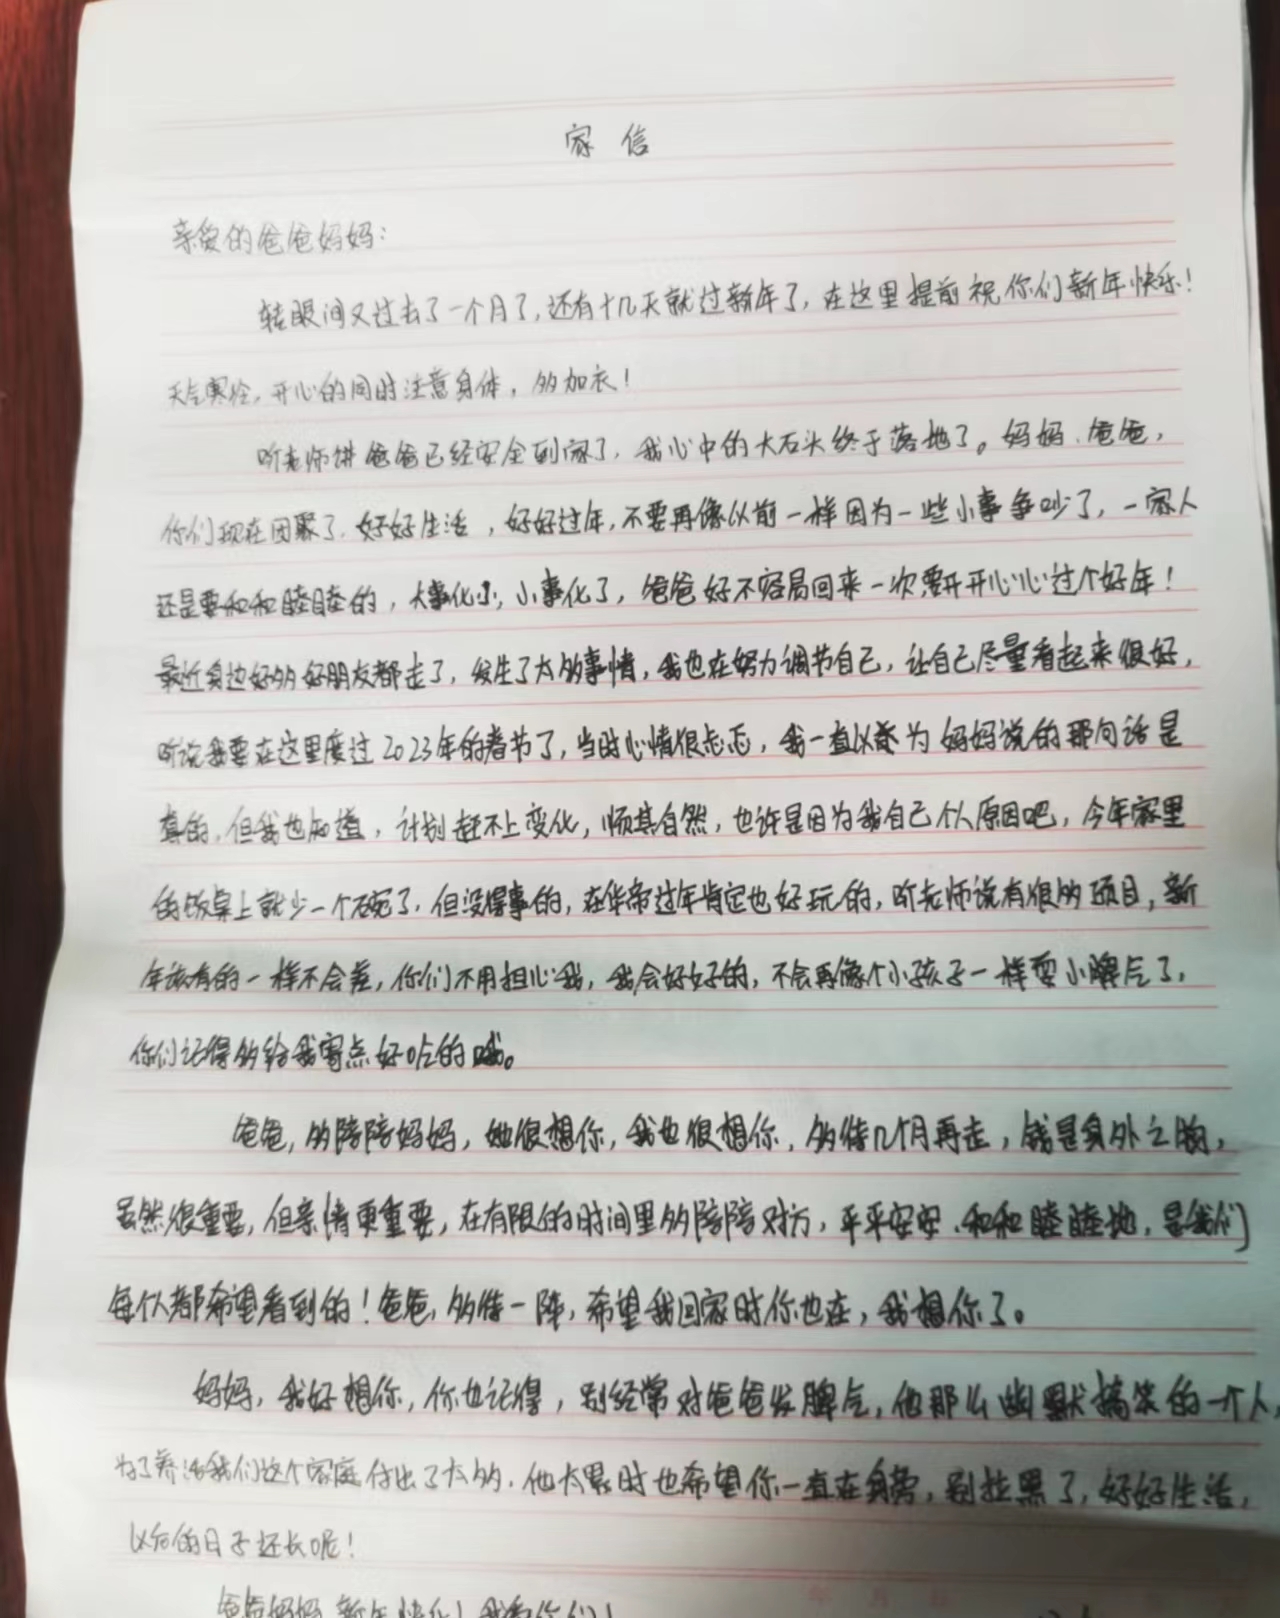 家信
亲爱的爸爸妈妈：
转眼间又过去了一个月了，还有十几天就过新年了，在这里提前祝你们新年快乐！
天气寒冷，开心的同时注意身体，多加衣！
听老师讲爸爸已经安全到家了，我心中的大石头终于落地了。妈妈、爸爸，
你们现在团聚了，好好生活，好好过年，不要再像以前一样因为一些小事争吵了，一家人
还是要和和睦睦的，大事化小，小事化了，爸爸好不容易回来一次，要开开心心过个好年！
最近身边好多好朋友都走了，发生了太多事情，我也在努力调节自己，让自己尽量看起来很好，
听说我要在这里度过2023年的春节了，当时心情很忐忑，我一直以为妈妈说的那句话是
真的，但我也知道，计划赶不上变化，顺其自然，也许是因为我自己个人原因吧，今年家里
的饭桌上就少一个碗了，但没得事的，在华帝过年肯定也好玩的，听老师说有很多项目，新
年该有的一样不会差，你们不用担心我，我会好好的，不会再像个小孩子一样耍小脾气了，
你们记得多给我寄点好吃的哦。
爸爸，多陪陪妈妈，她很想你，我也很想你，多待几个月再走，钱是身外之物，
虽然很重要，但亲情更重要，在有限的时间里多陪陪对方，平平安安、和和睦睦地，是我们
每个人都希望看到的！爸爸，多待一阵，希望我回家时你也在，我想你了。
妈妈，我好想你，你也记得，别经常对爸爸发脾气，他那么幽默搞笑的一个人，
为了养活我们这个家庭付出了太多，他太累时也希望你一直在身旁，别拉黑了，好好生活，
以后的日子还长呢！
爸爸妈妈，新年快乐！我爱你们！
年 月